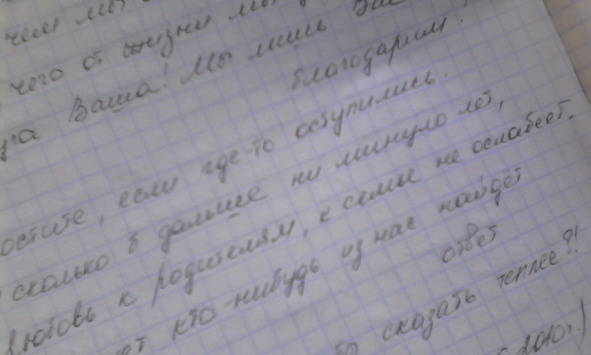 чем мы
чего от жизни мы
Ваша! Мы лишь Вас
благодарим!
остите, если где-то оступились.
сколько б дальше ни минуло лет,
Любовь к родителям, к семье не ослабеет.
ет кто-нибудь из нас найдёт
ответ
сказать теплее?!
2010г.)